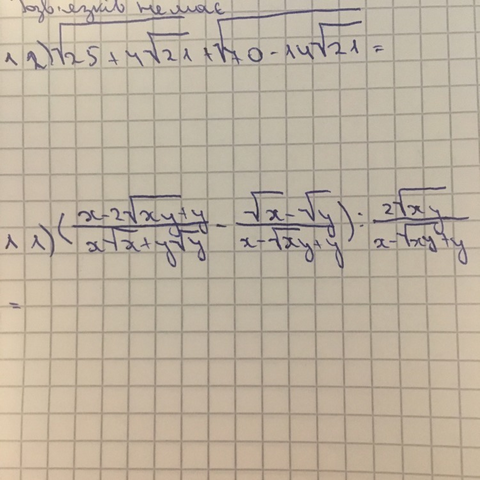 розв'язків немає
1 2) √25 + 4√21 + √70 - 14√21 =
1 1) (x-2√xy+y / x√x+y√y - √x-√y / x-√xy+y) : 2√xy / x-√xy+y
=